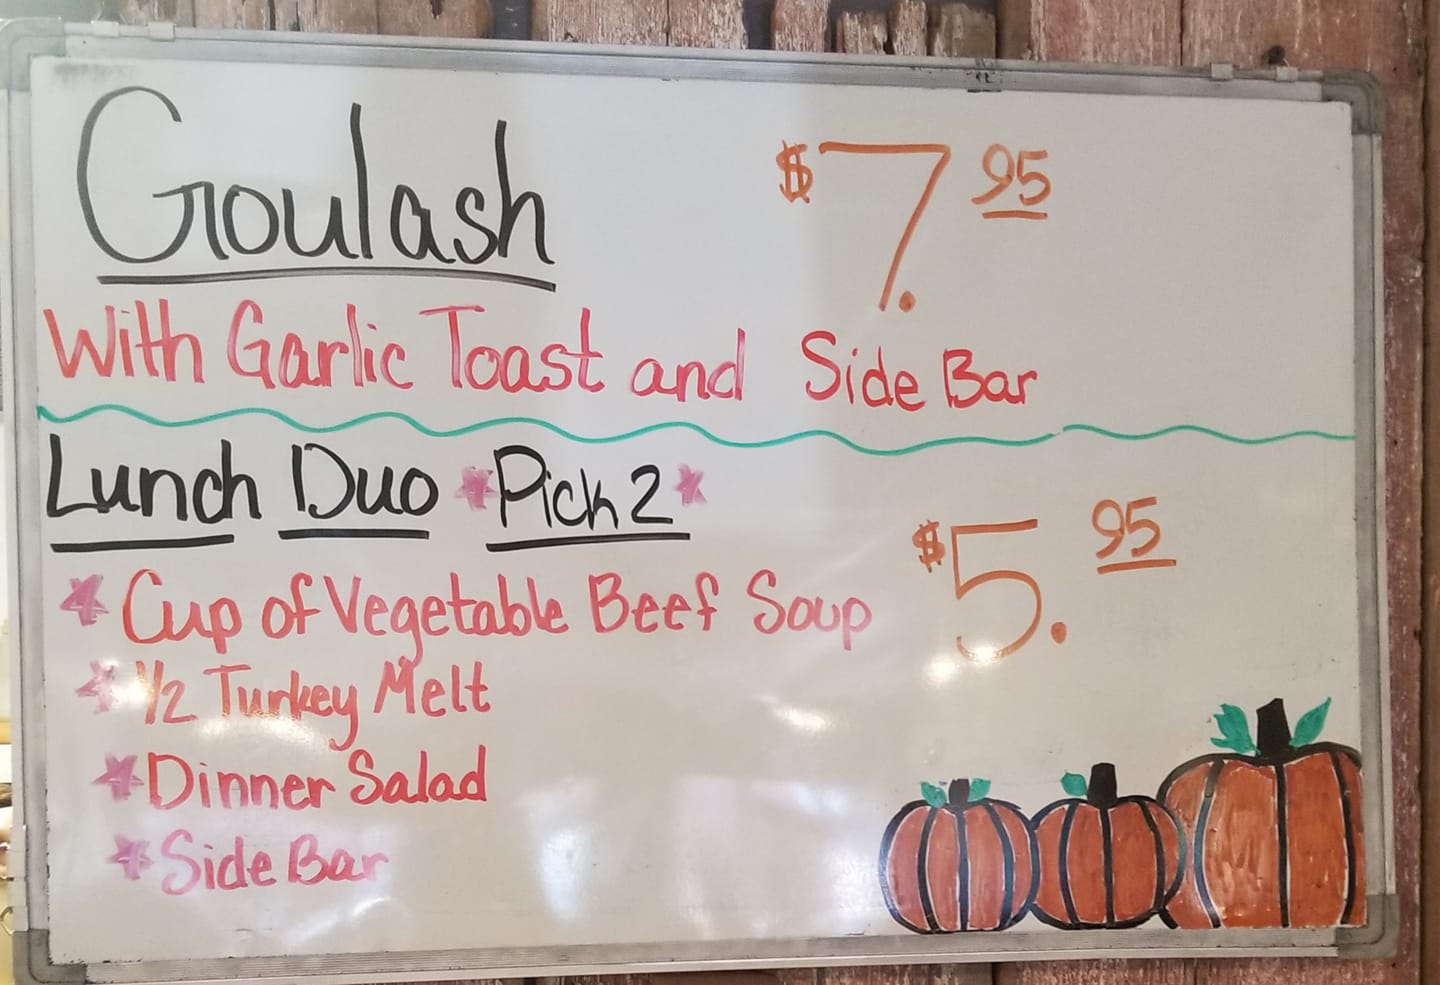 Goulash $7.95
With Garlic Toast and Side Bar
Lunch Duo *Pick 2*
$5.95
* Cup of Vegetable Beef Soup
* 1/2 Turkey Melt
* Dinner Salad
* Side Bar